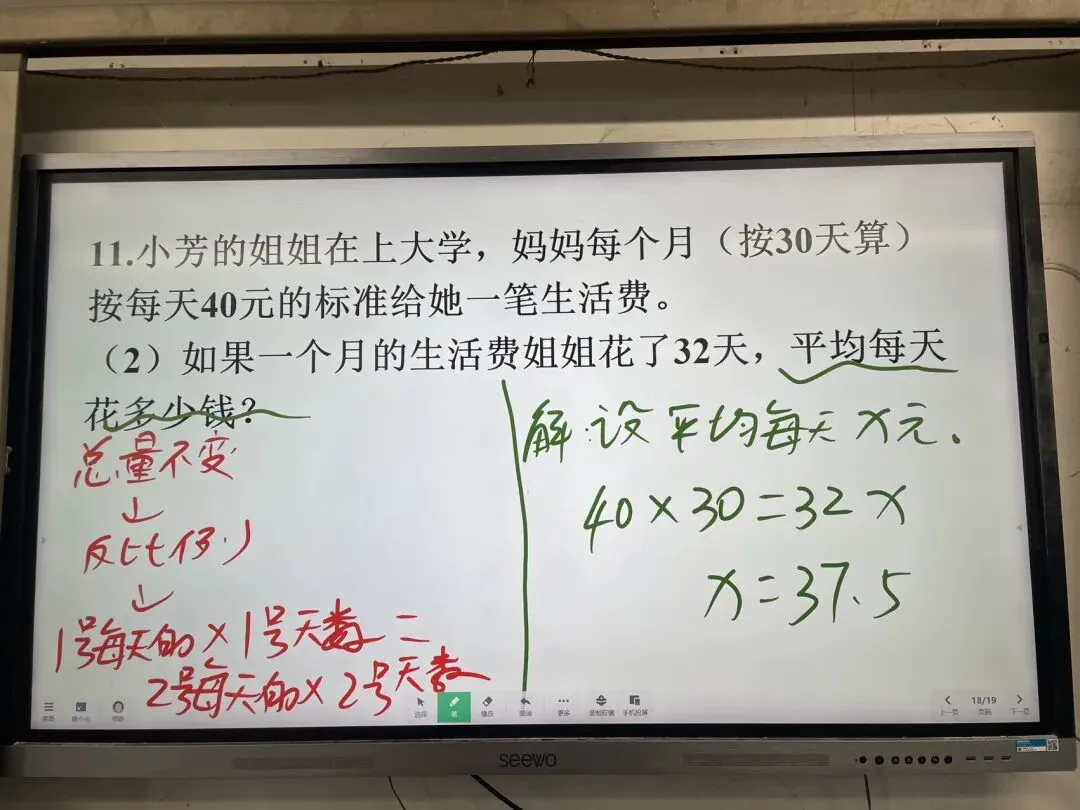 11.小芳的姐姐在上大学，妈妈每个月（按30天算）
按每天40元的标准给她一笔生活费。
（2）如果一个月的生活费姐姐花了32天，平均每天
花多少钱？
总量不变
↓
反比例
↓
1号每天的×1号天数=
2号每天的×2号天数
解:设平均每天x元.
40×30=32x
x=37.5
选择
笔
橡皮
更多
手机投屏
18/19
上一页
页面
下一页
seewo